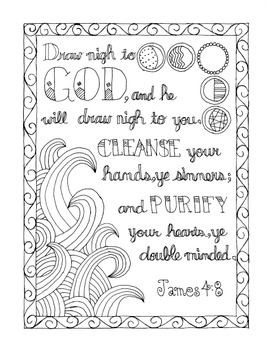 Draw nigh to
GOD, and he
will draw nigh to you.
CLEANSE your
hands, ye sinners;
and PURIFY
your hearts, ye
double minded.
James 4:8